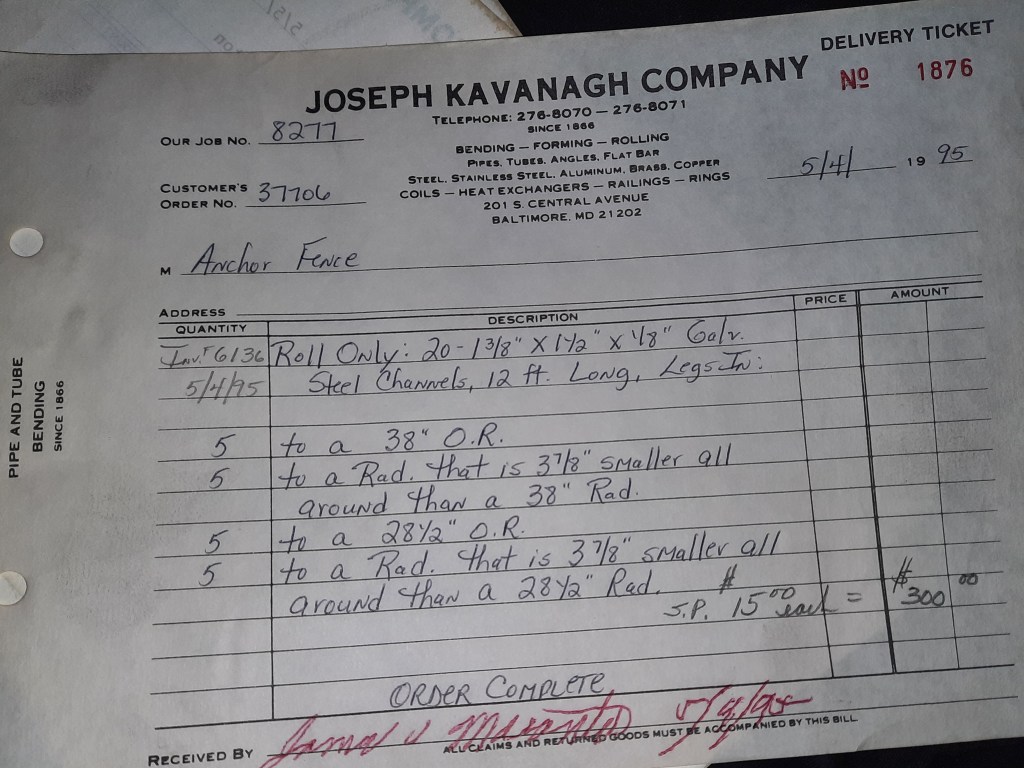 DELIVERY TICKET
JOSEPH KAVANAGH COMPANY
Nº 1876
TELEPHONE: 276-8070 — 276-8071
SINCE 1866
OUR JOB NO. 8277
BENDING — FORMING — ROLLING
PIPES, TUBES, ANGLES, FLAT BAR
STEEL, STAINLESS STEEL, ALUMINUM, BRASS, COPPER
COILS — HEAT EXCHANGERS — RAILINGS — RINGS
201 S. CENTRAL AVENUE
BALTIMORE, MD 21202
5/4/ 19 95
CUSTOMER'S
ORDER NO. 37706
M Anchor Fence
ADDRESS
QUANTITY DESCRIPTION PRICE AMOUNT
Inv.# 6136 Roll Only: 20 - 1 3/8" X 1 1/2" X 1/8" Galv.
5/4/95 Steel Channels, 12 ft. Long, Legs In:
5 to a 38" O.R.
5 to a Rad. that is 3 7/8" smaller all
around than a 38" Rad.
5 to a 28 1/2" O.R.
5 to a Rad. that is 3 7/8" smaller all
around than a 28 1/2" Rad.
S.P. $15.00 each = $300 00
ORDER COMPLETE
RECEIVED BY
ALL CLAIMS AND RETURNED GOODS MUST BE ACCOMPANIED BY THIS BILL
PIPE AND TUBE
BENDING
SINCE 1866